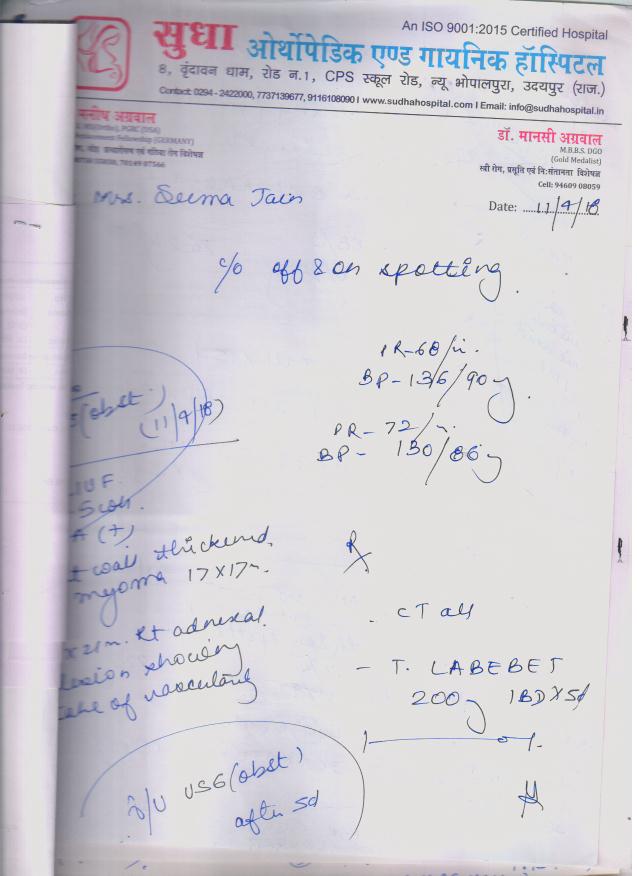 An ISO 9001:2015 Certified Hospital
सुधा ओर्थोपेडिक एण्ड गायनिक हॉस्पिटल
8, वृंदावन धाम, रोड न.1, CPS स्कूल रोड, न्यू भोपालपुरा, उदयपुर (राज.)
Contact: 0294 - 2422000, 7737139677, 9116108090 | www.sudhahospital.com | Email: info@sudhahospital.in
अग्रवाल
डॉ. मानसी अग्रवाल
M.B.B.S. DGO
(Gold Medalist)
स्त्री रोग, प्रसूति एवं निःसंतानता विशेषज्ञ
Cell: 94609 08059
Date: 11/4/18
Mrs. Seema Jain
c/o off & on spotting.
PR-68/
BP-136/90
PR-72/
BP- 130/86
(obst)
(11/4/18)
IUF
A (+)
wall thickened
myoma 17x17
Rt adnexal
lesion showing
of vascularity
Rx
- CT all
- T. LABEBET
200 1BD x 5d
USG (obst)
after 5d